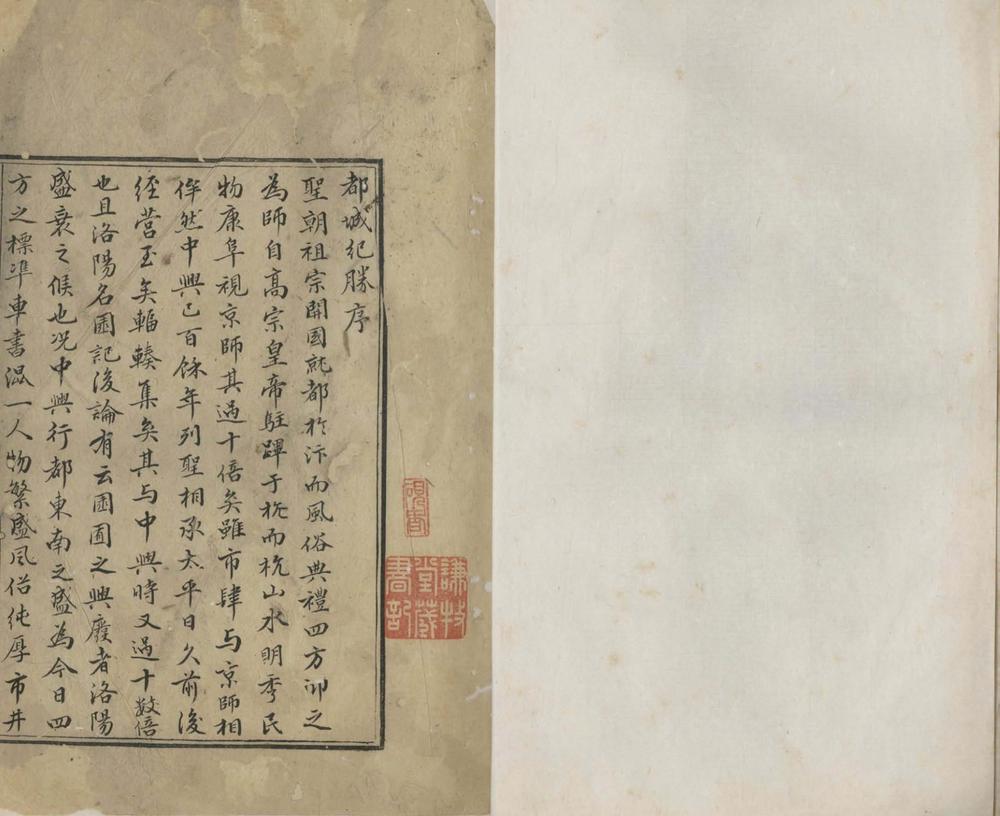 都城紀勝序
聖朝祖宗開國就都於汴而風俗典禮四方仰之
為師自高宗皇帝駐蹕于杭而杭山水明秀民
物康阜視京師其過十倍矣雖市肆与京師相
侔然中興已百餘年列聖相承太平日久前後
經營至矣輻輳集矣其与中興時又過十數倍
也且洛陽名園記後論有云園囿之興廢者洛陽
盛衰之候也况中興行都東南之盛為今日四
方之標準車書混一人物繁盛風俗純厚市井
謙牧
堂藏
書記